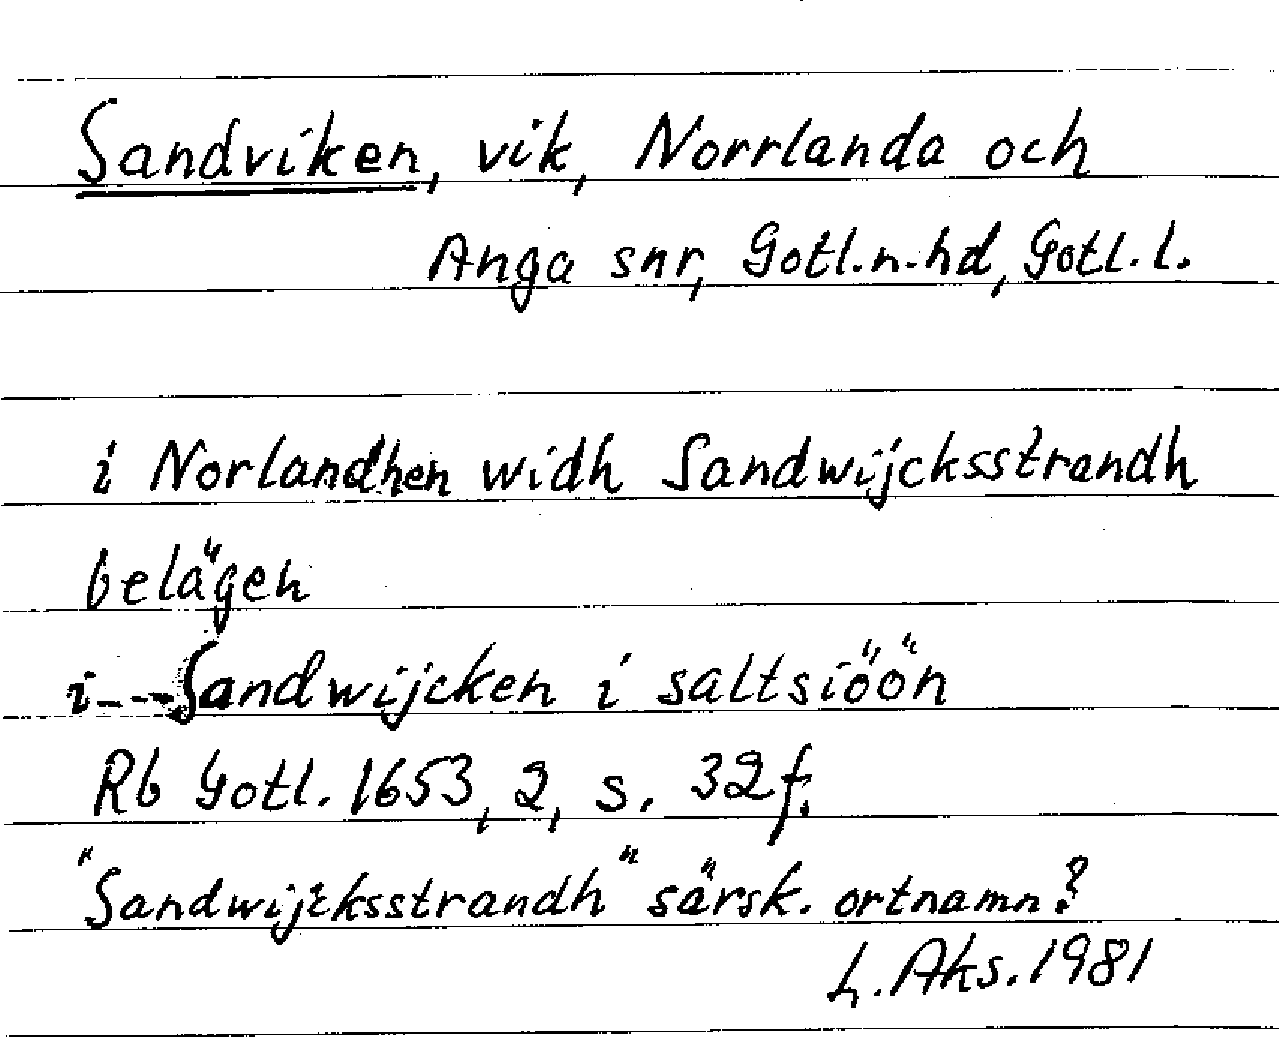 Sandviken, vik, Norrlanda och
Anga snr, Gotl.n.hd, Gotl. l.
i Norlandhen widh Sandwijcksstrandh
belägen
i---Sandwijcken i saltsiöön
Rb Gotl. 1653, 2, s. 32 f.
"Sandwijcksstrandh" särsk. ortnamn?
L. Aks. 1981